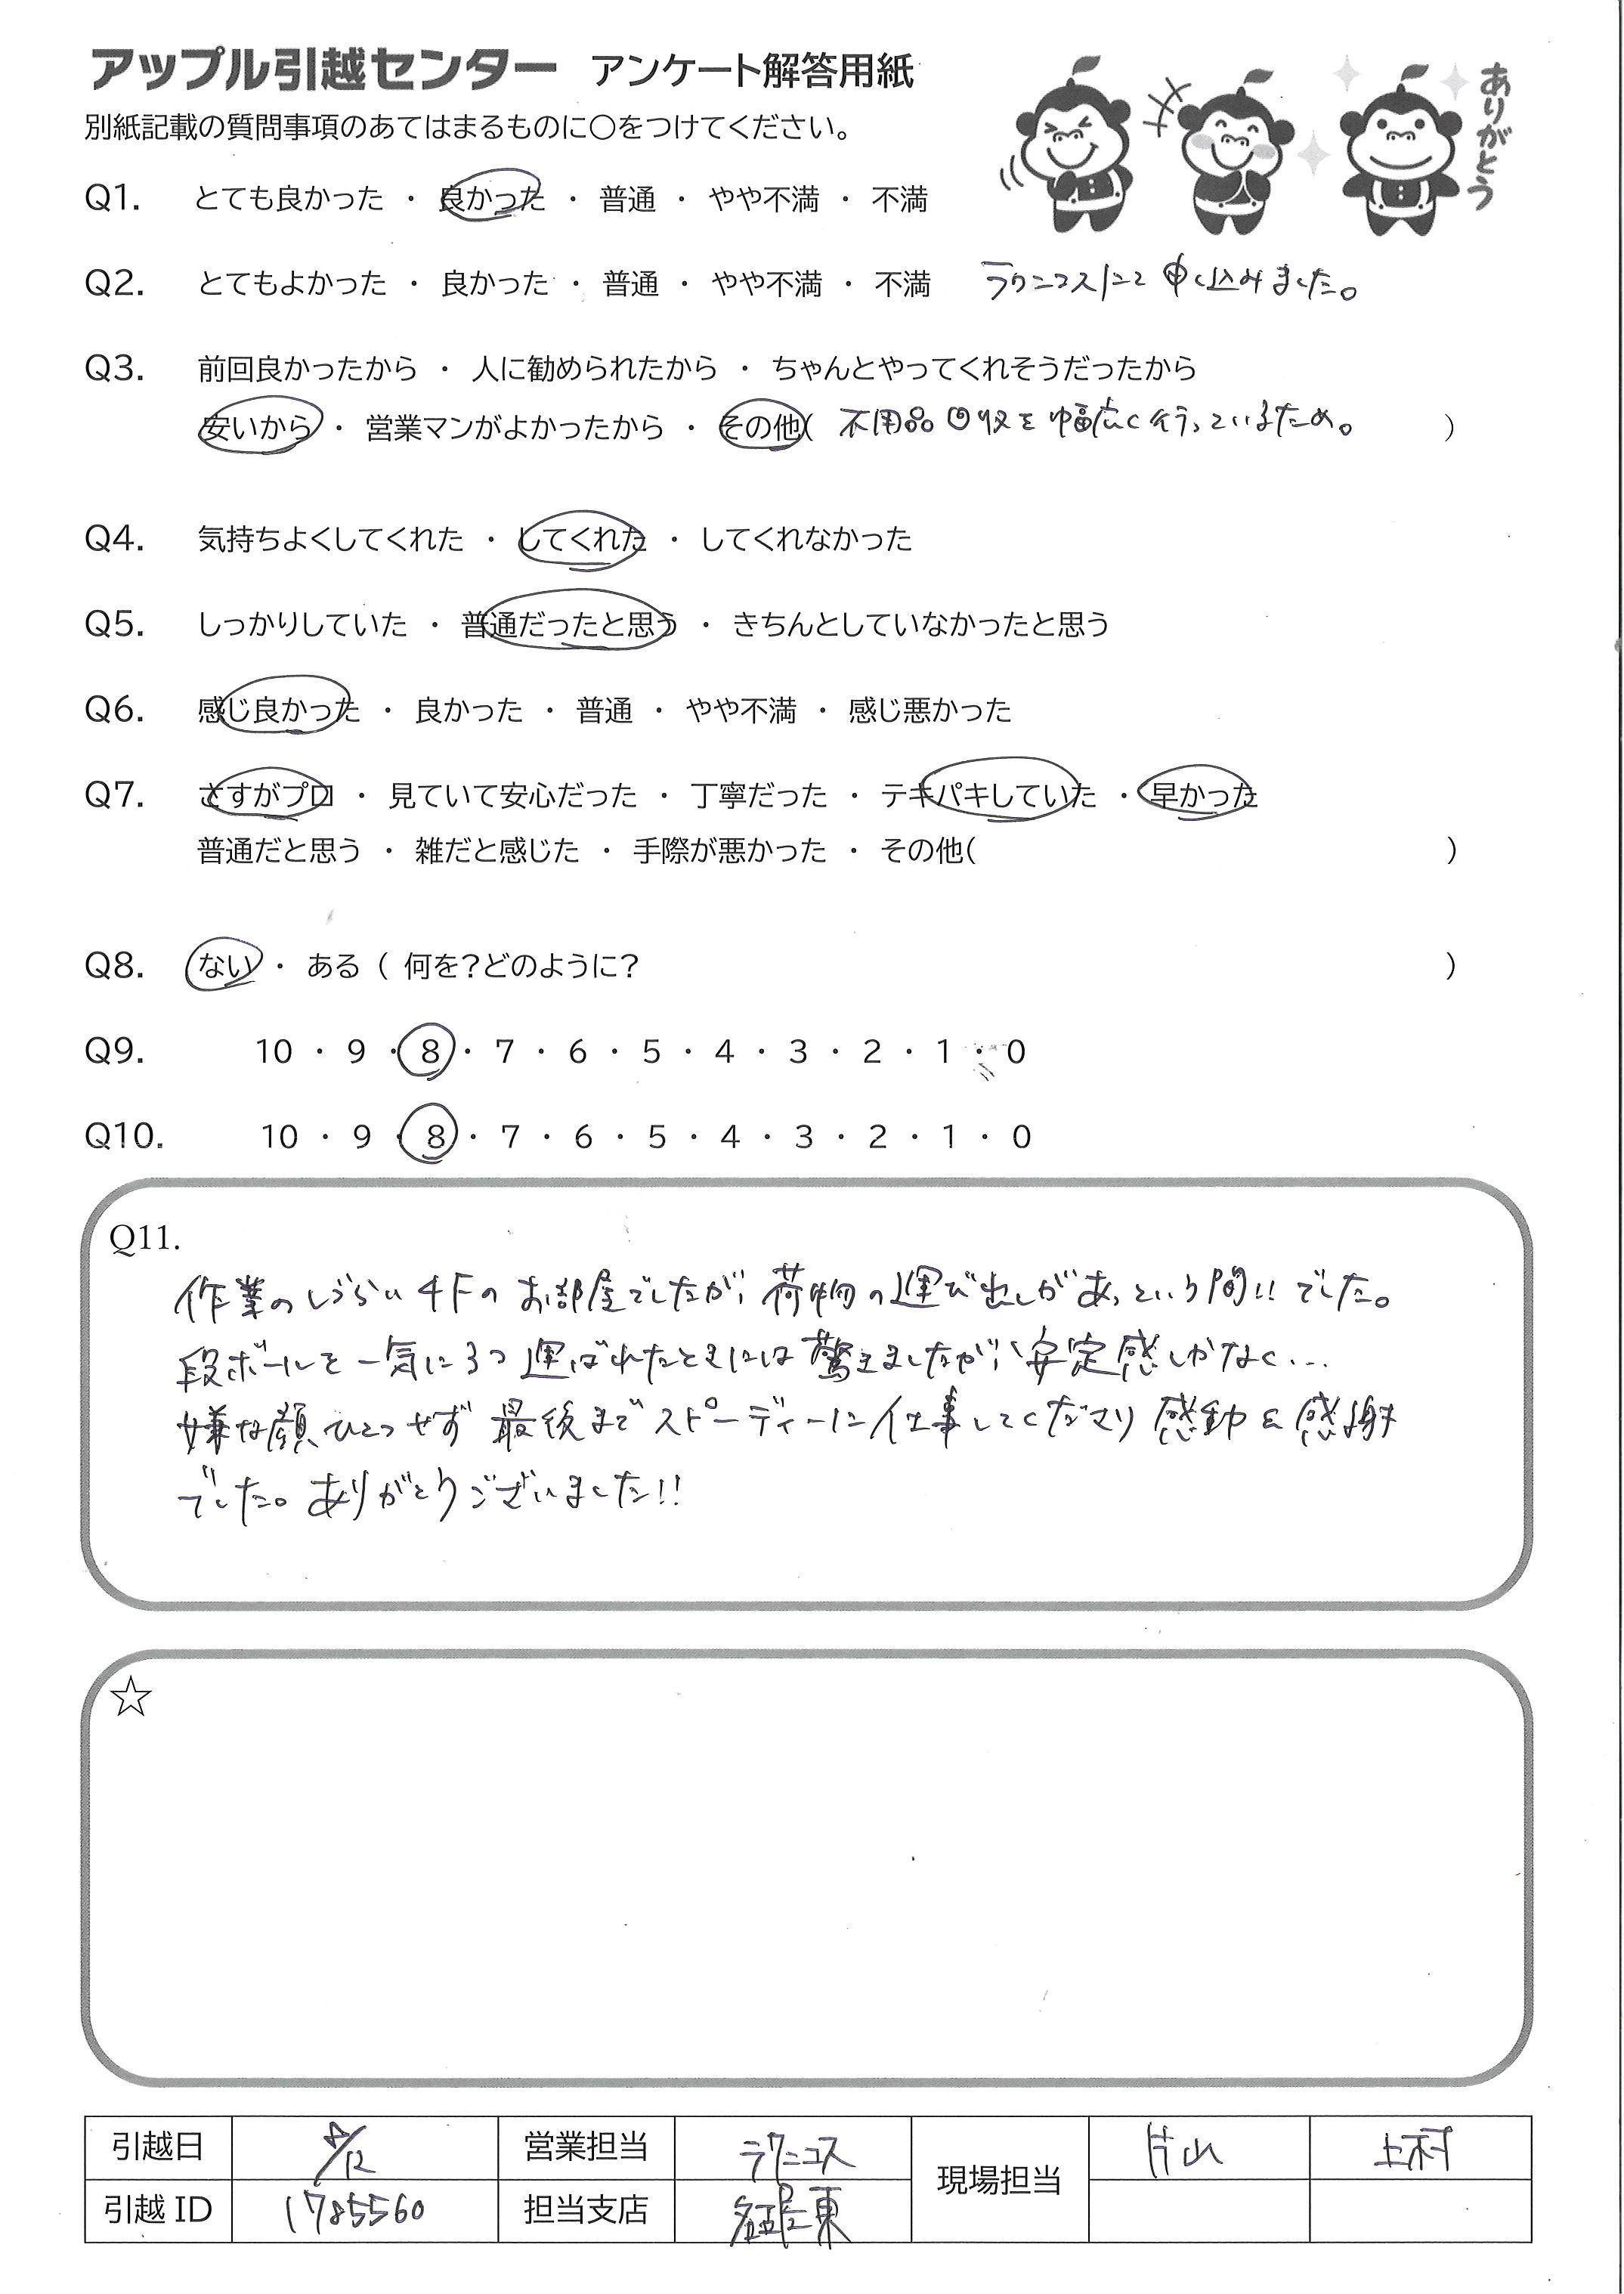 アップル引越センター アンケート解答用紙
ありがとう
別紙記載の質問事項のあてはまるものに○をつけてください。
Q1. とても良かった ・ 良かった ・ 普通 ・ やや不満 ・ 不満
Q2. とてもよかった ・ 良かった ・ 普通 ・ やや不満 ・ 不満 ラクニコスにて申し込みました。
Q3. 前回良かったから ・ 人に勧められたから ・ ちゃんとやってくれそうだったから
安いから ・ 営業マンがよかったから ・ その他( 不用品回収を幅広く行っているため。 )
Q4. 気持ちよくしてくれた ・ してくれた ・ してくれなかった
Q5. しっかりしていた ・ 普通だったと思う ・ きちんとしていなかったと思う
Q6. 感じ良かった ・ 良かった ・ 普通 ・ やや不満 ・ 感じ悪かった
Q7. さすがプロ ・ 見ていて安心だった ・ 丁寧だった ・ テキパキしていた ・ 早かった
普通だと思う ・ 雑だと感じた ・ 手際が悪かった ・ その他( )
Q8. ない ・ ある ( 何を?どのように? )
Q9. 10 ・ 9 ・ 8 ・ 7 ・ 6 ・ 5 ・ 4 ・ 3 ・ 2 ・ 1 ・ 0
Q10. 10 ・ 9 ・ 8 ・ 7 ・ 6 ・ 5 ・ 4 ・ 3 ・ 2 ・ 1 ・ 0
Q11.
作業のしづらい4Fのお部屋でしたが、荷物の運び出しがあっという間!!でした。
段ボールを一気に3つ運ばれたときには驚きましたが、安定感しかなく…
嫌な顔ひとつせず最後までスピーディーに仕事してくださり感動&感謝
でした。ありがとうございました!!
☆
引越日 /12 営業担当 ラクニコス 現場担当 片山 上村
引越ID 1785560 担当支店 名古屋東